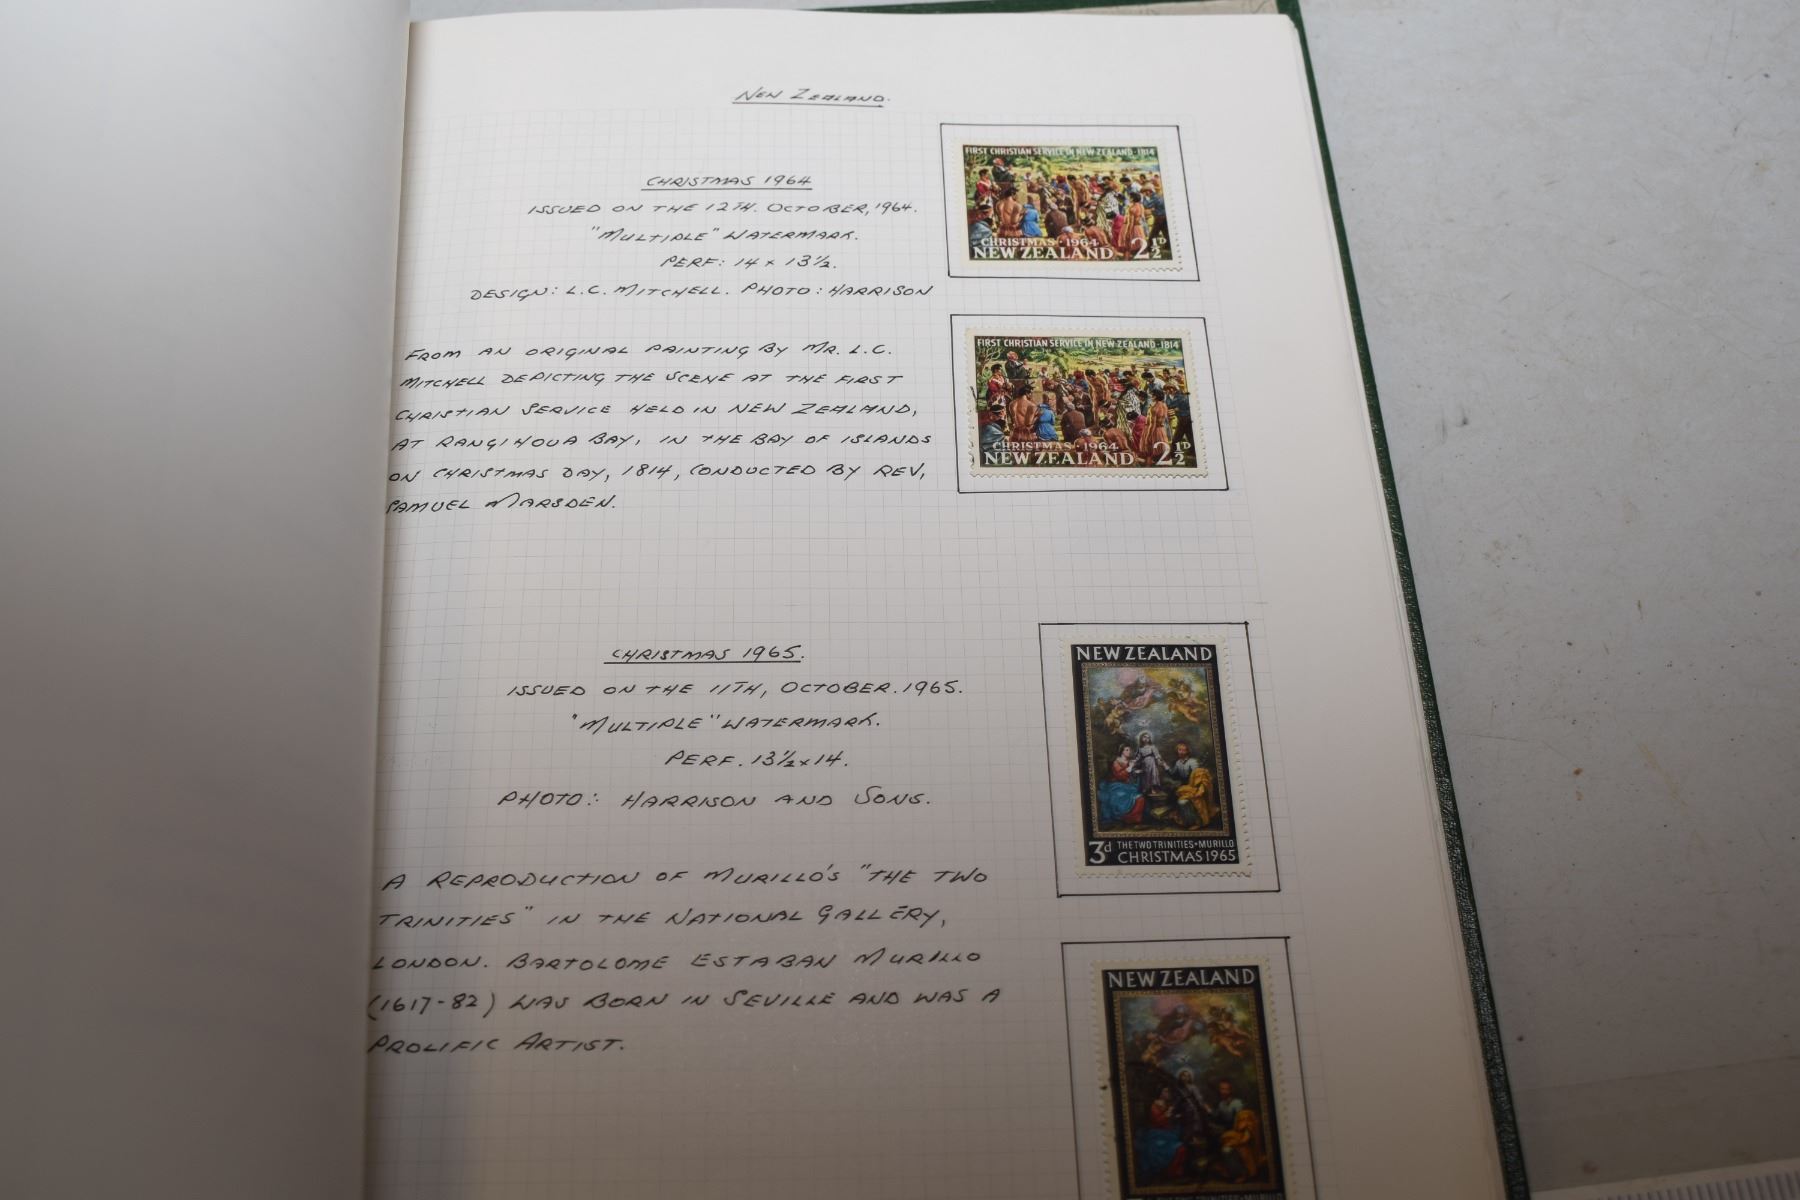 NEW ZEALAND.
CHRISTMAS 1964
ISSUED ON THE 12TH. OCTOBER, 1964.
"MULTIPLE" WATERMARK.
PERF: 14 x 13½.
DESIGN: L.C. MITCHELL. PHOTO: HARRISON
FROM AN ORIGINAL PAINTING BY MR. L.C.
MITCHELL DEPICTING THE SCENE AT THE FIRST
CHRISTIAN SERVICE HELD IN NEW ZEALAND,
AT RANGIHOUA BAY, IN THE BAY OF ISLANDS
ON CHRISTMAS DAY, 1814, CONDUCTED BY REV,
SAMUEL MARSDEN.
FIRST CHRISTIAN SERVICE IN NEW ZEALAND · 1814
CHRISTMAS · 1964
NEW ZEALAND 2½D
FIRST CHRISTIAN SERVICE IN NEW ZEALAND · 1814
CHRISTMAS · 1964
NEW ZEALAND 2½D
CHRISTMAS 1965.
ISSUED ON THE 11TH, OCTOBER. 1965.
"MULTIPLE" WATERMARK.
PERF. 13½ x 14.
PHOTO: HARRISON AND SONS.
A REPRODUCTION OF MURILLO'S "THE TWO
TRINITIES" IN THE NATIONAL GALLERY,
LONDON. BARTOLOME ESTABAN MURILLO
(1617-82) WAS BORN IN SEVILLE AND WAS A
PROLIFIC ARTIST.
NEW ZEALAND
3d THE TWO TRINITIES • MURILLO
CHRISTMAS 1965
NEW ZEALAND
THE TWO TRINITIES • MURILLO